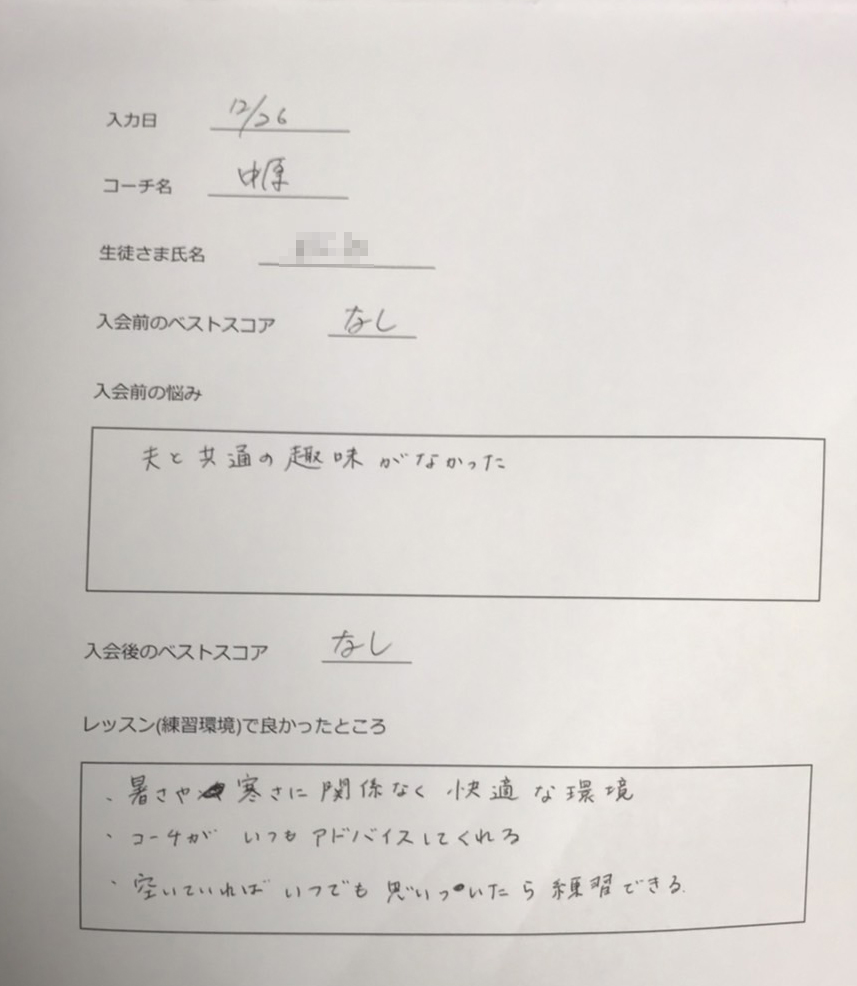 入力日 12/26
コーチ名 中原
生徒さま氏名
入会前のベストスコア なし
入会前の悩み
夫と共通の趣味がなかった
入会後のベストスコア なし
レッスン(練習環境)で良かったところ
・暑さや寒さに関係なく快適な環境
・コーチがいつもアドバイスしてくれる
・空いていればいつでも思いついたら練習できる.